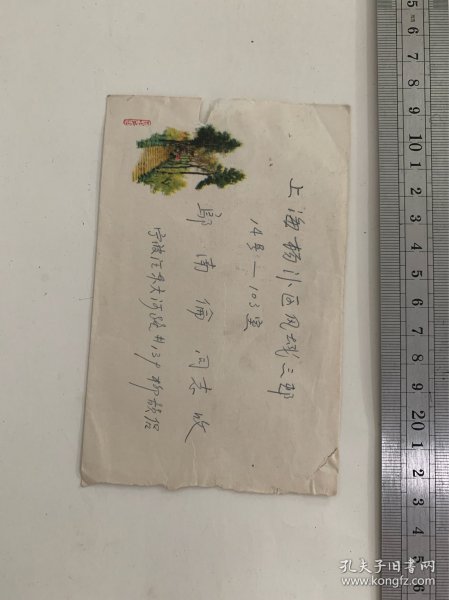 上海杨浦区凤城三邨
14号—103室
邬南倫同志收
宁波江东大河路#138 柳
5 6 7 8 9 10 1 2 3 4 5 6 7 8 9 20 1 2 3 4 5 6
孔夫子旧书网
www.kongfz.com